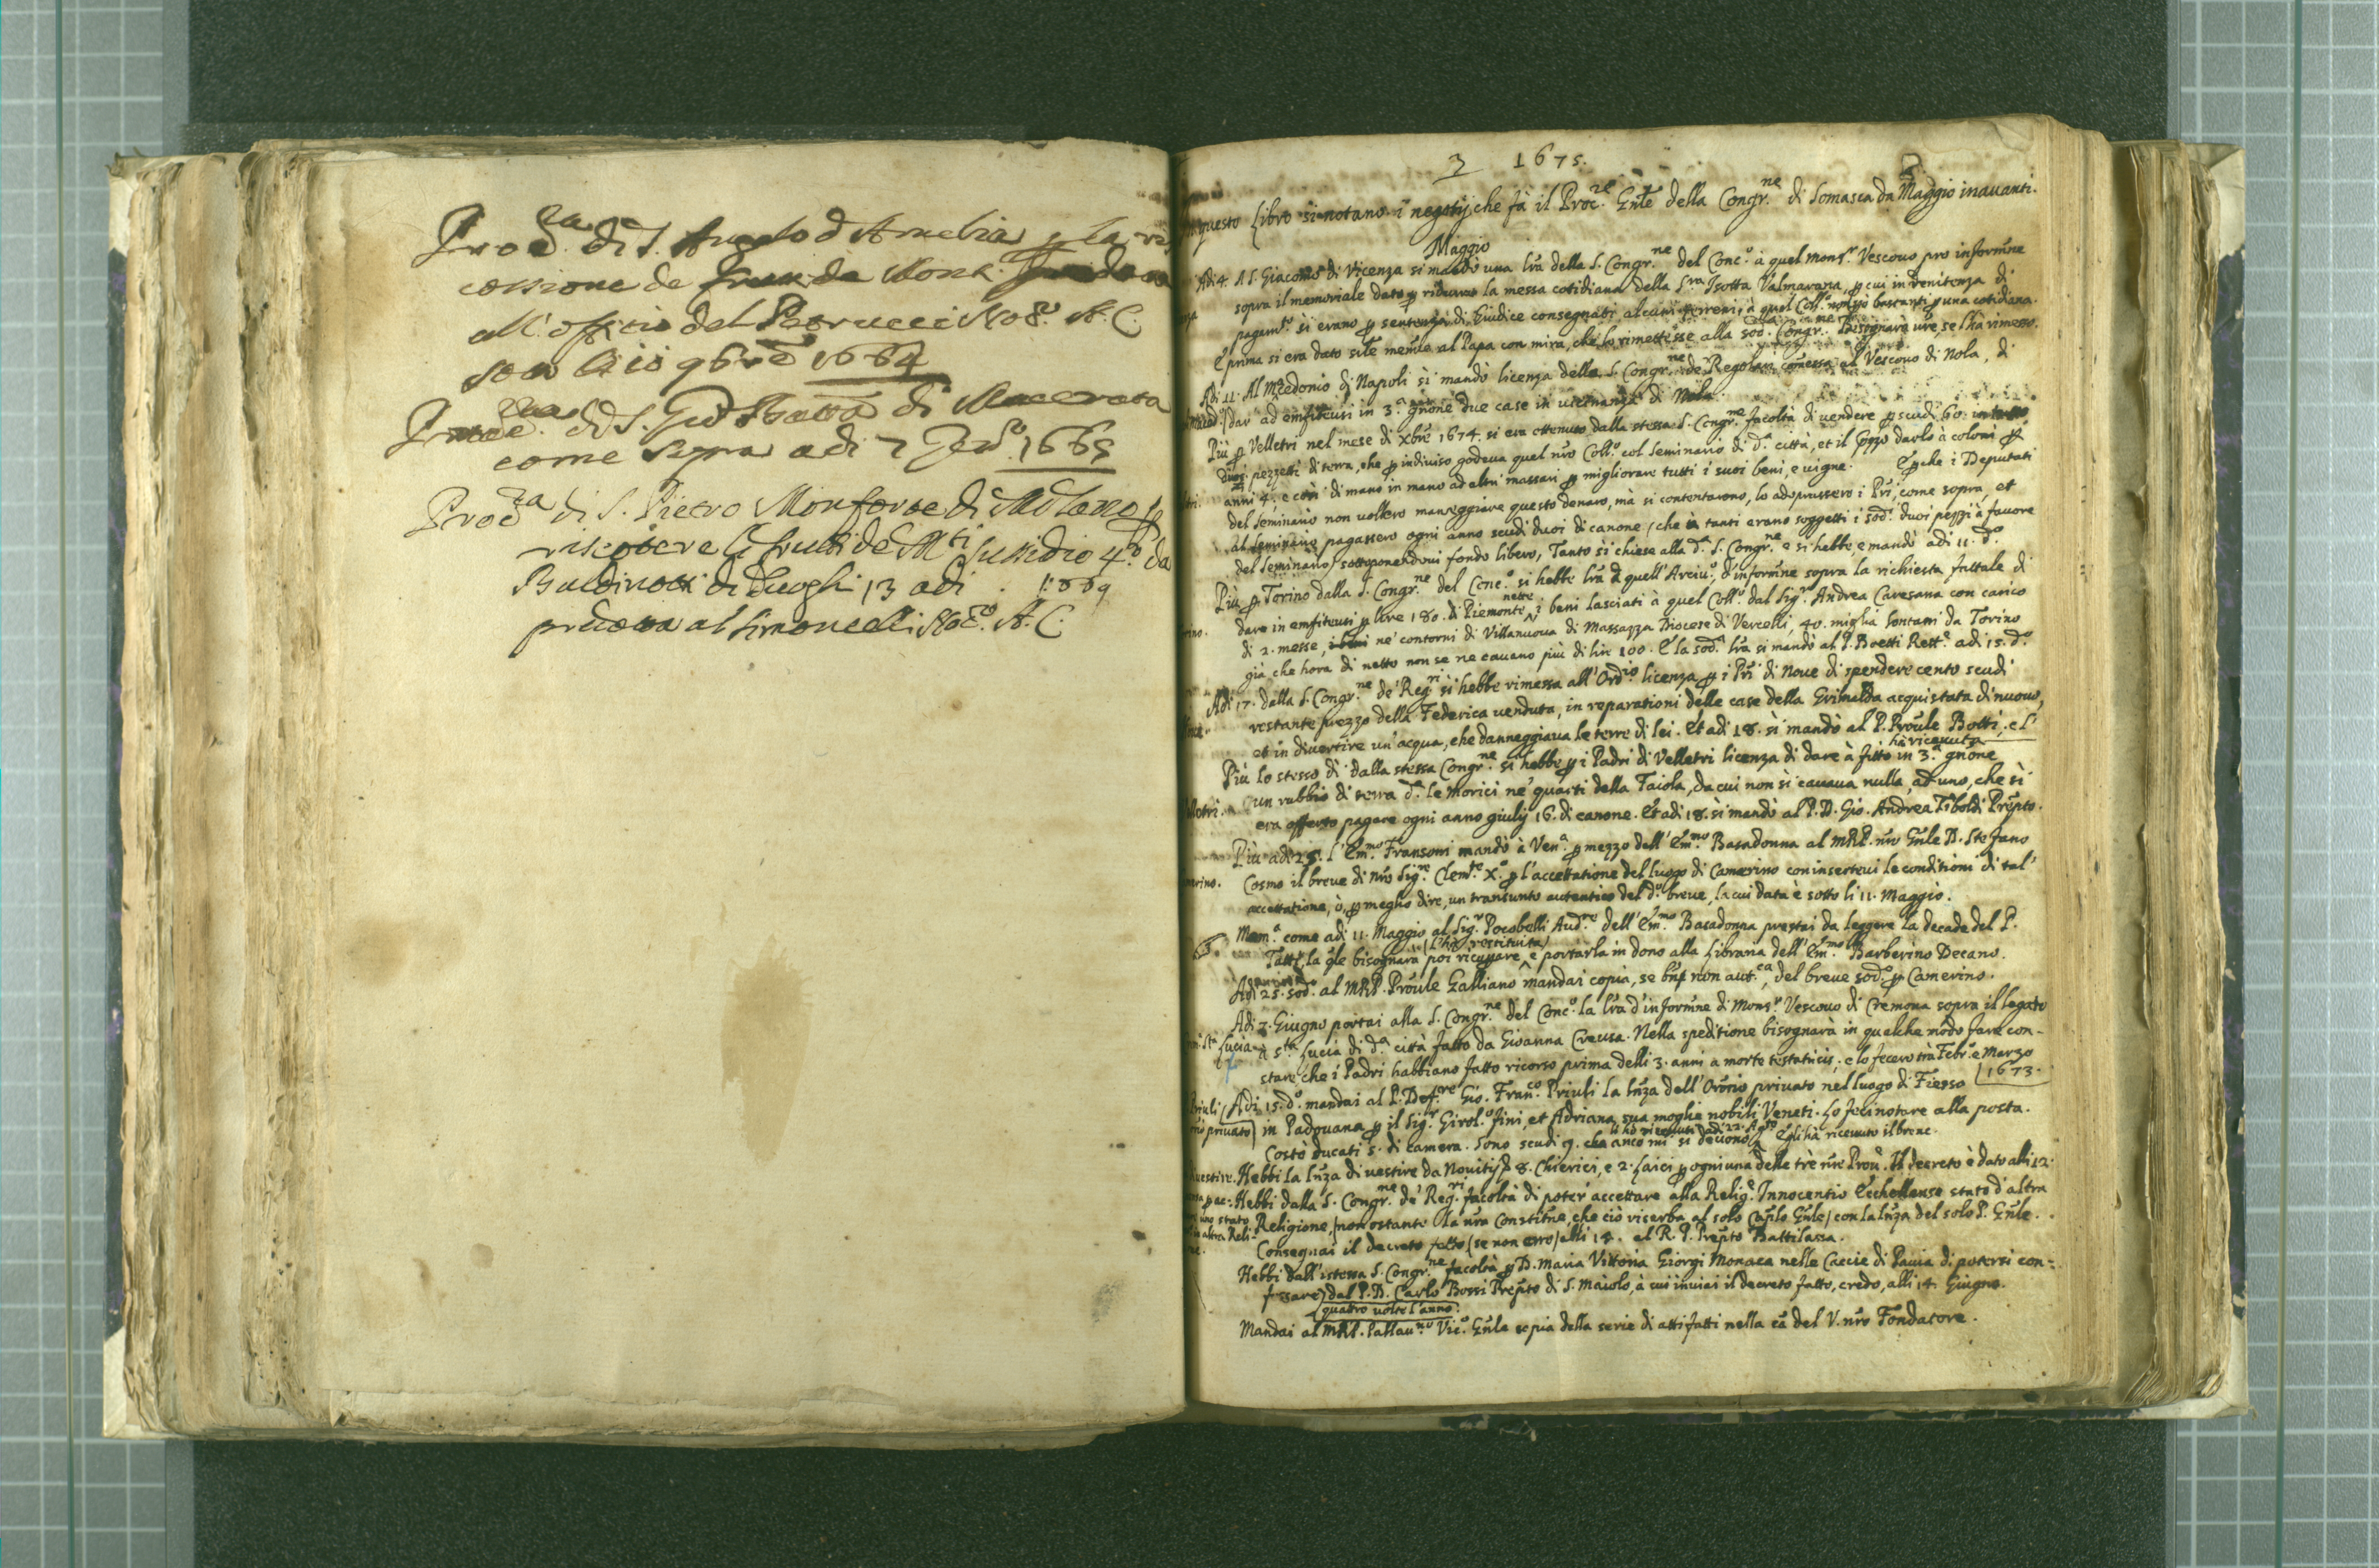 Proc.ra di S. Angelo d'Amelia p la ris
cossione de frutti de Mont.
all'offitio del Petrucci Not.o A. C.
sotto li 10 9bre 1664
Proc.ra di S. Gio Battà di Macerata
come sopra adi 7 Feb.o 1665
Proc.ra di S. Pietro Monforte di Milano p
riscotere li frutti de Mti sussidio 4.o da
Baldinotti di Luoghi 13 adi . 1669
prodotta al Simoncelli Not.o A. C.
3 1675.
In questo Libro si notano i negotij, che fà il Proc.re Gnle della Congr.ne di Somasca da Maggio inavanti.
Maggio
Adi 4. A S. Giacomo di Vicenza si mandò una lra della S. Congr.ne del Conc.o à quel Mons.r Vescovo pro informne
sopra il memoriale dato p ridurre la messa cotidiana della S.ra Isotta Valmarana, p cui in penitenza di
pagam.to si erano p sentenza di Giudice consegnati alcuni terreni à quel Coll.o non più bastanti p una cotidiana.
E prima si era dato sile memle al Papa con mira, che lo rimettesse alla sod.a Congr.ne Bisognarà vre, se l'hà rimesso.
Adi 11. Al Mcedonio di Napoli si mandò licenza della S. Congr.ne de' Regolari comessa al Vescovo di Nola, di
dar' ad emfiteusi in 3.a gnone due case in vicinanza di Nola.
Più p Velletri nel mese di Xbre 1674. si era ottenuto dalla stessa S. Congr.ne facoltà di vendere p scudi 60.
duoi pezzetti di terra, che p indiviso godeva quel nro Coll.o col Seminario di d.a città, et il pzzo darlo à coloni p
anni 4. e così di mano in mano ad altri massari p migliorare tutti i suoi beni, e vigne. E pche i Deputati
del Seminario non vollero maneggiare questo denaro, mà si contentarono, lo adoprassero i Pri, come sopra, et
al Seminario pagassero ogni anno scudi duoi di canone (che à tanti erano soggetti i sod.i duoi pezzi à favore
del Seminario) sottoponendovi fondo libero, Tanto si chiese alla d.a S. Congr.ne e si hebbe, e mandò adi 11. d.o
Più p Torino dalla S. Congr.ne del Conc.o si hebbe lra à quell'Arciv.o d'informne sopra la richiesta fattale di
dare in emfiteusi p lire 180. di Piemonte nette i beni lasciati à quel Coll.o dal Sig.r Andrea Caresana con carico
di 2. messe, ne' contorni di Villanuova di Massazza Diocese di Vercelli, 40. miglia lontani da Torino
già che hora di netto non se ne cavano più di lire 100. E la sod.a lra si mandò al P. Boetti Rett.e adi 15. d.o
Adi 17. dalla S. Congr.ne de' Reg.ri si hebbe rimessa all'Ord.io licenza p i Pri di Nove di spendere cento scudi
restante prezzo della Federica venduta, in reparationi delle case della Grimalda acquistata di nuovo,
et in divertire un'acqua, che danneggiava le terre di lei. Et adi 18. si mandò al P. Proule Botti, e l'
hà ricevuta
Più lo stesso dì dalla stessa Congr.ne si hebbe p i Padri di Velletri licenza di dare à fitto in 3.a gnone
un rubbio di terra d.a le Morici ne' quarti della Faiola, da cui non si cavava nulla, ad uno, che si
era offerto pagare ogni anno giulij 16. di canone. Et adi 18. si mandò al P. D. Gio. Andrea Tiboldi Prepto.
Più adi 25. l'Em.mo Fransoni mandò à Ven.a p mezzo dell'Em.mo Basadonna al MRP. nro Gnle D. Stefano
Cosmo il breve di nro Sig.re Clem.te X.o p l'accettatione del luogo di Camerino con insertevi le conditioni di tal'
accettatione, ò, p meglio dire, un transunto autentico del d.o breve, la cui data è sotto li 11. Maggio.
Mem.a come adi 11. Maggio al Sig.r Pocobelli Aud.re dell'Em.mo Basadonna prestai da leggere la decade del P.
(l'hà restituita)
Tatti, la qle bisognarà poi ricuprare, e portarla in dono alla libraria dell'Em.mo Barberino Decano.
Adi 25. sod.o al MRP. Proule Galliano mandai copia, se bne non aut.ca, del breve sod.o p Camerino.
Adi 7. Giugno portai alla S. Congr.ne del Conc.o la lra d'informne di Mons.r Vescovo di Cremona sopra il legato
à S.ta Lucia di d.a città fatto da Giovanna Creusa. Nella speditione bisognarà in qualche modo fare con-
stare, che i Padri habbiano fatto ricorso prima delli 3. anni à morte testatricis; e lo fecero trà Febr.o e Marzo
1673.
Adi 15. d.o mandai al P. Def.re Gio. Fran.co Priuli la lnza dell'Ororio privato nel luogo di Fiesso
in Padovana p il Sig.r Girol.o Fini, et Adriana sua moglie nobili Veneti. Lo feci notare alla posta.
li hò ricevuti adi 22. Ag.to
Costò ducati 5. di camera. Sono scudi 9. che anco mi si devono. Egli hà ricevuto il breve.
vestire. Hebbi la lnza di vestire da Novitij 8. Chierici, e 2. laici p ogni una delle trè nre Prov.e Il decreto è dato alli 12.
Hebbi dalla S. Congr.ne de' Reg.ri facoltà di poter' accettare alla Relig.e Innocentio Ecchellense stato d'altra
Religione, (non ostante la nra Constitne, che ciò riserba al solo Capilo Gnle) con la lnza del solo P. Gnle.
Consegnai il decreto fatto (se non erro) alli 14. al R. P. Prepto Battilana.
Hebbi dall'istessa S. Congr.ne facoltà p D. Maria Vittoria Giorgi Monaca nelle Caccie di Pavia di potersi con-
fssare dal P. D. Carlo Bossi Prepto di S. Maiolo, à cui inviai il decreto fatto, credo, alli 14. Giugno.
quattro volte l'anno.
Mandai al MRP. Pallav.no Vic.o Gnle copia della serie di atti fatti nella cā del V. nro Fondatore.